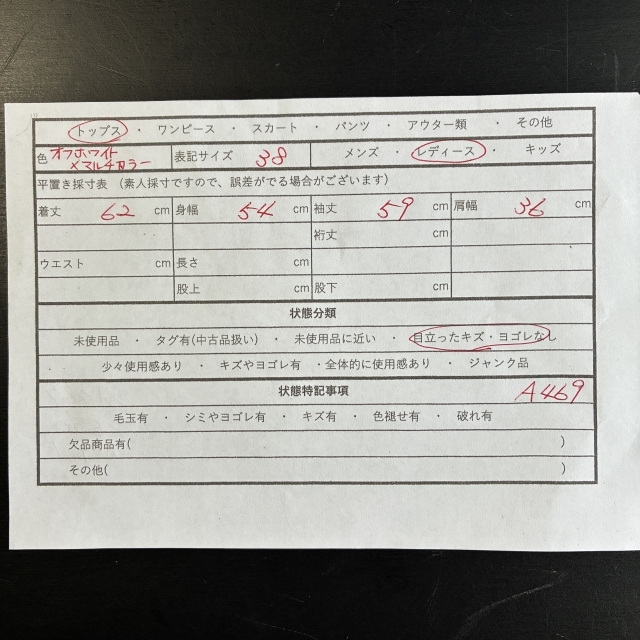 トップス ・ ワンピース ・ スカート ・ パンツ ・ アウター類 ・ その他
色 オフホワイト×マルチカラー 表記サイズ 38 メンズ ・ レディース ・ キッズ
平置き採寸表 (素人採寸ですので、誤差がでる場合がございます)
着丈 62 cm 身幅 54 cm 袖丈 59 cm 肩幅 36 cm
裄丈 cm
ウエスト cm 長さ cm
股上 cm 股下 cm
状態分類
未使用品 ・ タグ有(中古品扱い) ・ 未使用品に近い ・ 目立ったキズ・ヨゴレなし
・ 少々使用感あり ・ キズやヨゴレ有 ・全体的に使用感あり ・ ジャンク品
状態特記事項 A469
毛玉有 ・ シミやヨゴレ有 ・ キズ有 ・ 色褪せ有 ・ 破れ有
欠品商品有( )
その他( )